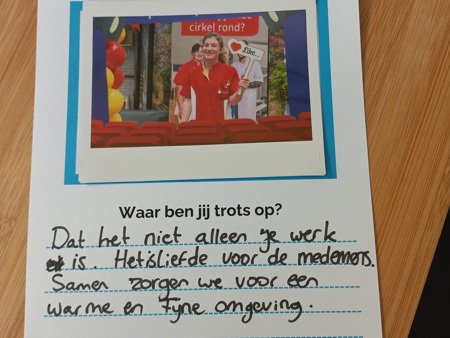 cirkel rond?
Like...
Waar ben jij trots op?
Dat het niet alleen je werk
is. Het is liefde voor de medemens.
Samen zorgen we voor een
warme en fijne omgeving.